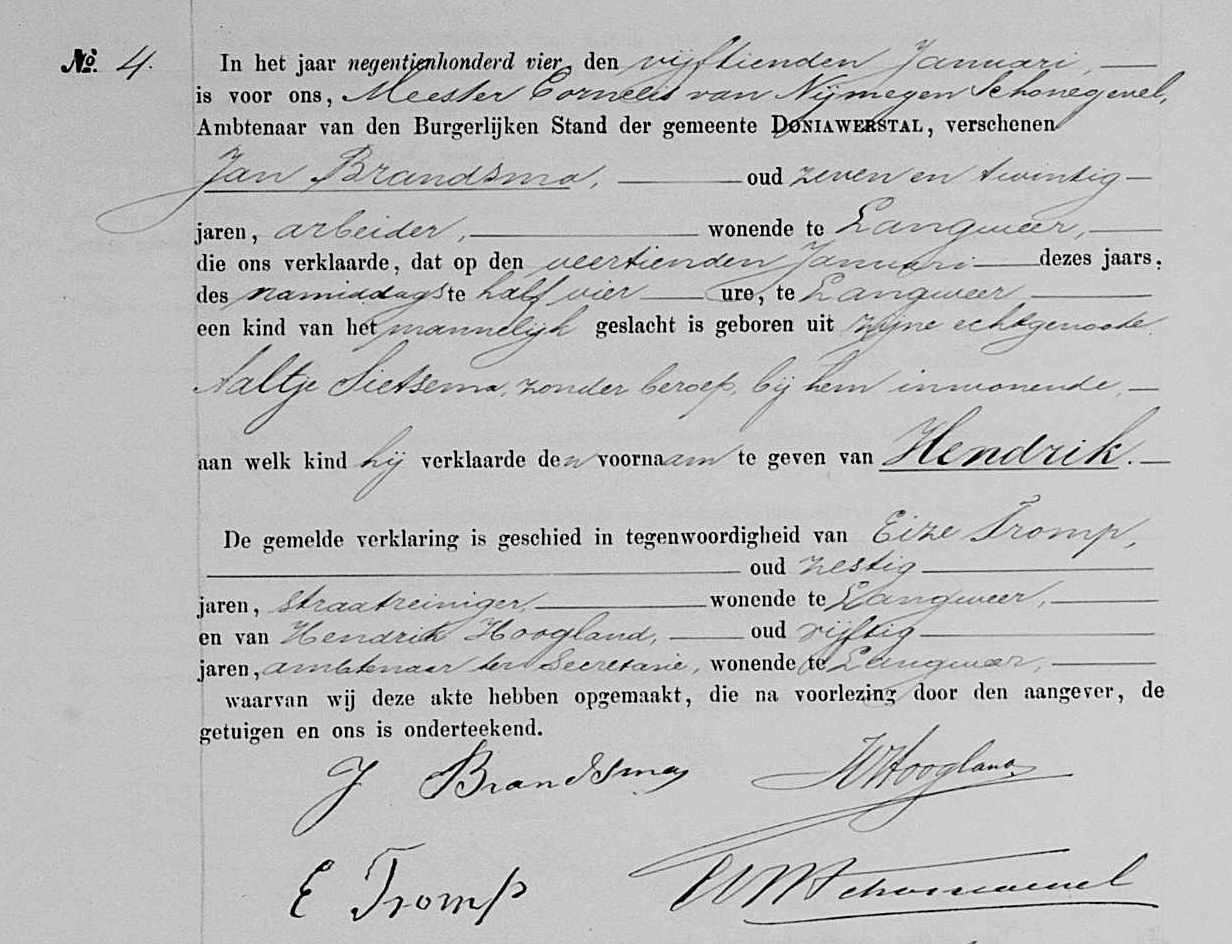 No. 4. In het jaar negentienhonderd vier, den vijftienden Januari,
is voor ons, Meester Cornelis van Nijmegen Schonegevel,
Ambtenaar van den Burgerlijken Stand der gemeente DONIAWERSTAL, verschenen
Jan Brandsma, oud zeven en twintig
jaren, arbeider, wonende te Langweer,
die ons verklaarde, dat op den veertienden Januari dezes jaars,
des namiddags te half vier ure, te Langweer
een kind van het mannelijk geslacht is geboren uit zijne echtgenoote
Aaltje Sietsema, zonder beroep, bij hem inwonende,
aan welk kind hij verklaarde den voornaam te geven van Hendrik.
De gemelde verklaring is geschied in tegenwoordigheid van Eize Tromp,
oud zestig
jaren, straatreiniger, wonende te Langweer,
en van Hendrik Hoogland, oud vijftig
jaren, ambtenaar ter Secretarie, wonende te Langweer,
waarvan wij deze akte hebben opgemaakt, die na voorlezing door den aangever, de
getuigen en ons is onderteekend.
J Brandsma HHoogland
E Tromp